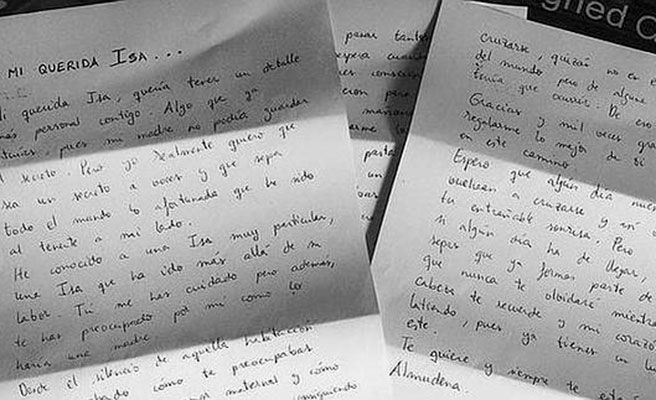 MI QUERIDA ISA...
Mi querida Isa, quería tener un detalle
más personal contigo. Algo que ya
intuías, pues mi madre no podía guardar
el secreto. Pero yo realmente quiero que
sea un secreto a voces y que sepa
todo el mundo lo afortunada que he sido
al tenerte a mi lado.
He conocido a una Isa muy particular,
una Isa que ha ido más allá de su
labor. Tú me has cuidado pero además,
te has preocupado por mí como lo
haría una madre.
Desde el silencio de aquella habitación
cómo te preocupabas
maternal y cómo
pasar tantas
espera
para
mañana
pasta
cruzarse, quizás no en e
del mundo pero de alguna
tenía que ocurrir. De eso
Gracias y mil veces gra
regalarme lo mejor de ti
en este camino.
Espero que algún día nues
vuelvan a cruzarse y
tu entrañable sonrisa. Pero
si algún día ha de llegar,
sepas que ya formas parte de
que nunca te olvidaré mientra
cabeza te recuerde y mi corazó
latiendo, pues ya tienes un lu
este.
Te quiere y siempre te est
Almudena.
gned C